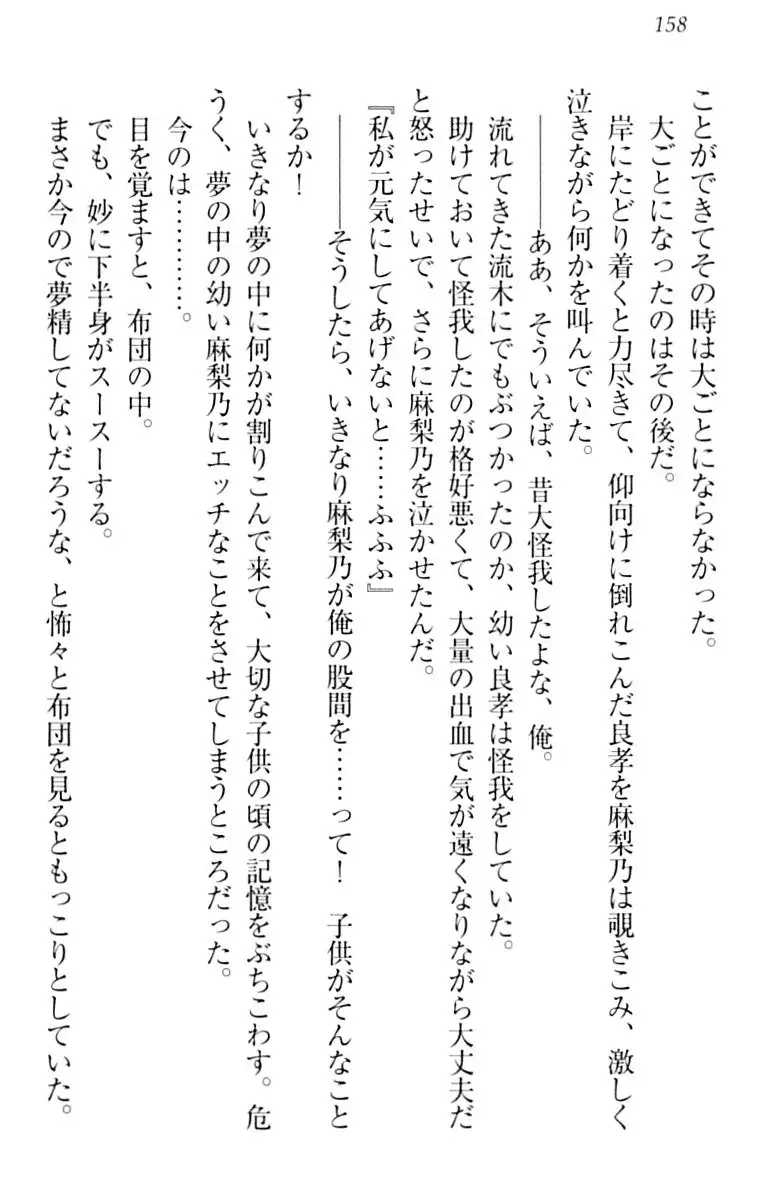 158
ことができてその時は大ごとにならなかった。
大ごとになったのはその後だ。
岸にたどり着くと力尽きて、仰向けに倒れこんだ良孝を麻梨乃は覗きこみ、激しく
泣きながら何かを叫んでいた。
――――ああ、そういえば、昔大怪我したよな、俺。
流れてきた流木にでもぶつかったのか、幼い良孝は怪我をしていた。
助けておいて怪我したのが格好悪くて、大量の出血で気が遠くなりながら大丈夫だ
と怒ったせいで、さらに麻梨乃を泣かせたんだ。
『私が元気にしてあげないと……ふふふ』
――――そうしたら、いきなり麻梨乃が俺の股間を……って！　子供がそんなこと
するか！
いきなり夢の中に何かが割りこんで来て、大切な子供の頃の記憶をぶちこわす。危
うく、夢の中の幼い麻梨乃にエッチなことをさせてしまうところだった。
今のは…………。
目を覚ますと、布団の中。
でも、妙に下半身がスースーする。
まさか今ので夢精してないだろうな、と怖々と布団を見るともっこりとしていた。